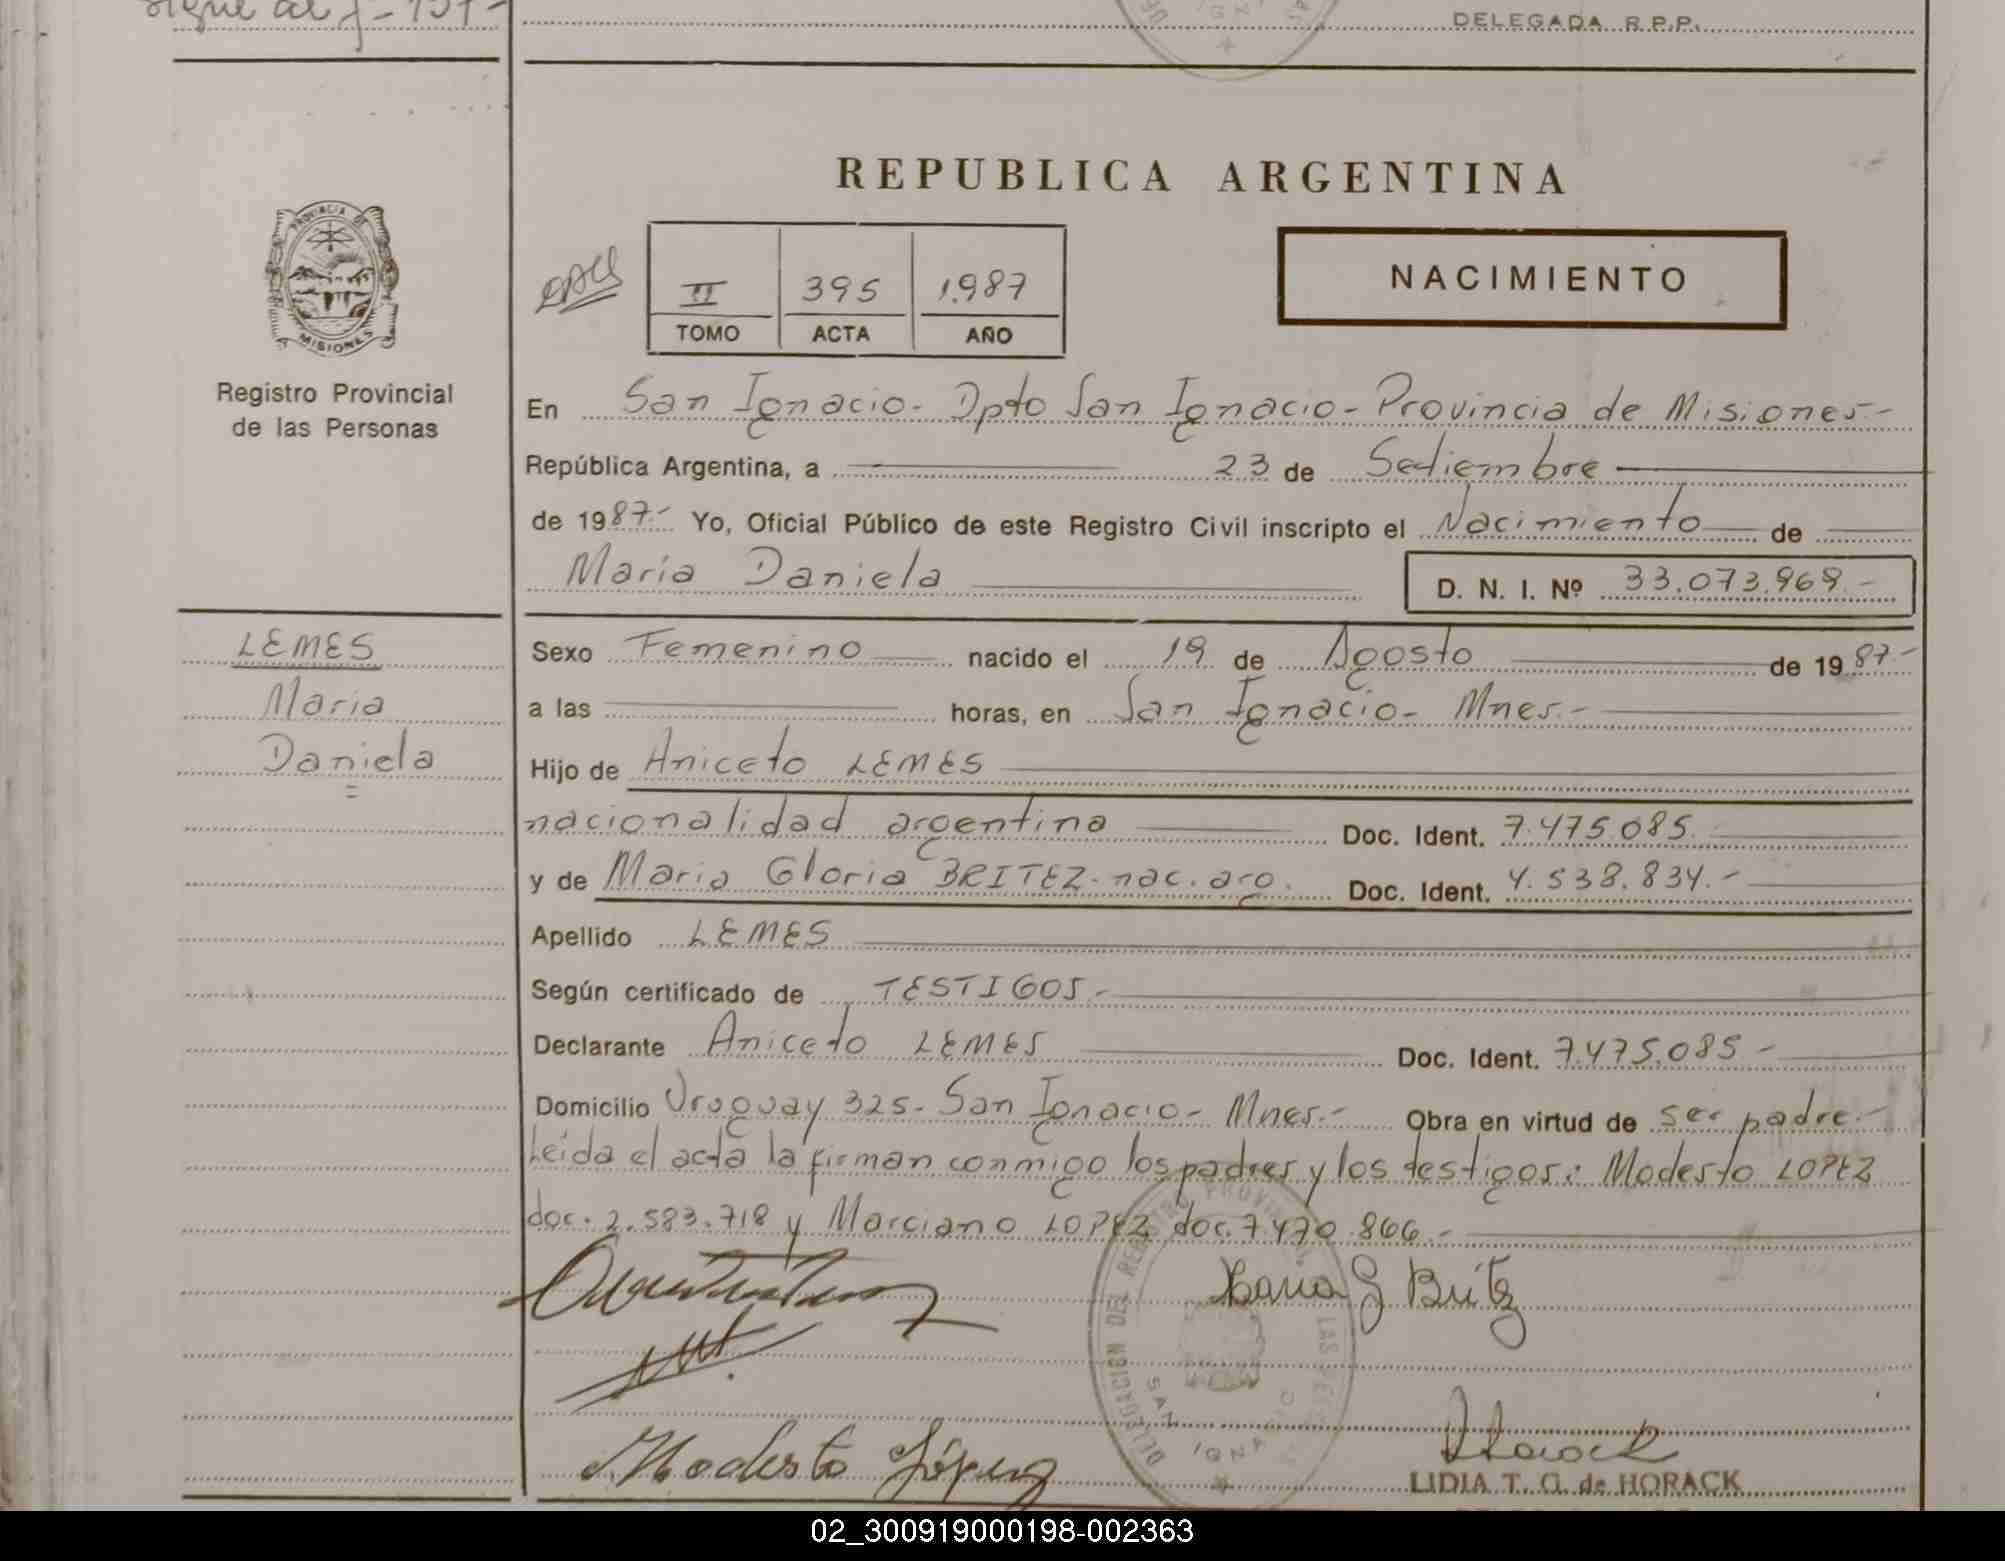 Sigue al f- 197-
DELEGADA R.P.P.
REPUBLICA ARGENTINA
PROVINCIA DE
MISIONES
Registro Provincial
de las Personas
II 395 1.987
TOMO ACTA AÑO
NACIMIENTO
En San Ignacio- Dpto San Ignacio- Provincia de Misiones-
República Argentina, a 23 de Setiembre
de 1987.- Yo, Oficial Público de este Registro Civil inscripto el Nacimiento de
Maria Daniela D. N. I. Nº 33.073.969.-
LEMES
Maria
Daniela
Sexo Femenino nacido el 19 de Agosto de 1987-
a las horas, en San Ignacio- Mnes.-
Hijo de Aniceto LEMES
nacionalidad argentina Doc. Ident. 7.475.085.
y de Maria Gloria BRITEZ- nac. arg. Doc. Ident. 4.538.834.-
Apellido LEMES
Según certificado de TESTIGOS.-
Declarante Aniceto LEMES Doc. Ident. 7.475.085-
Domicilio Uruguay 325- San Ignacio- Mnes.- Obra en virtud de ser padre.-
Leida el acta la firman conmigo los padres y los testigos: Modesto LOPEZ
doc. 2.583.718 y Marciano LOPEZ doc. 7.470.866.-
Maria G Britez
DELEGACION DEL REGISTRO PROVINCIAL DE LAS PERSONAS
SAN IGNACIO
Modesto López
Horack
LIDIA T. G. de HORACK
02_300919000198-002363